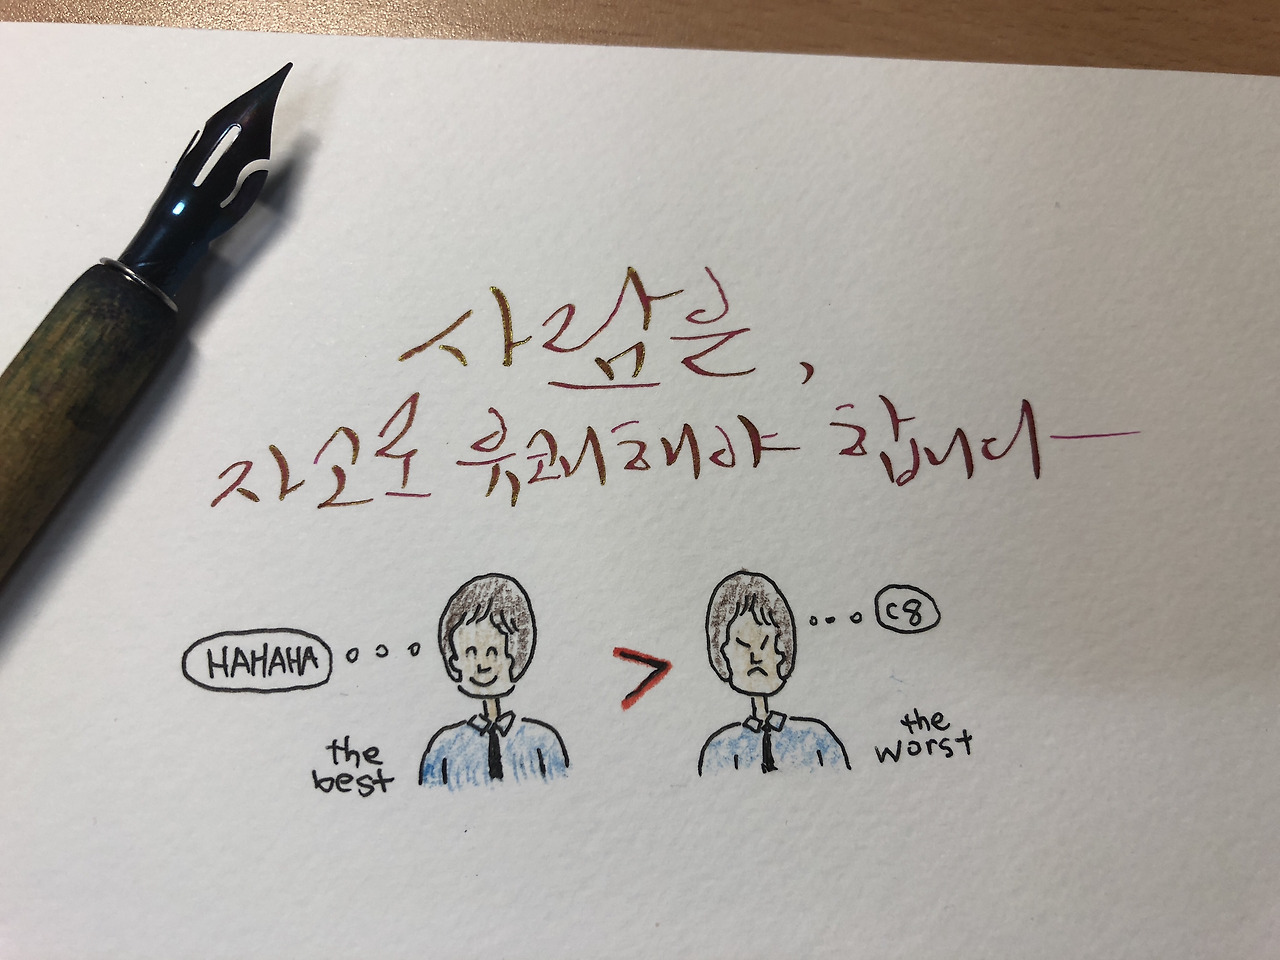 사람은,
자고로 유쾌해야 합니다
HAHAHA
c8
the
best
>
the
worst